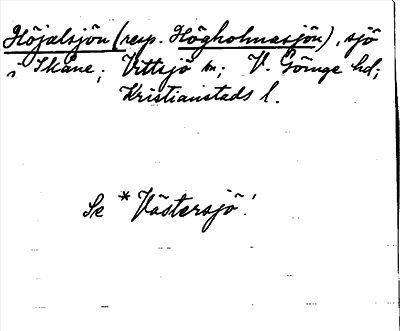 Höjalsjön (resp. Högholmasjön), sjö
i Skåne; Vittsjö sn; V. Göinge hd;
Kristianstads l.
Se *Västersjö!